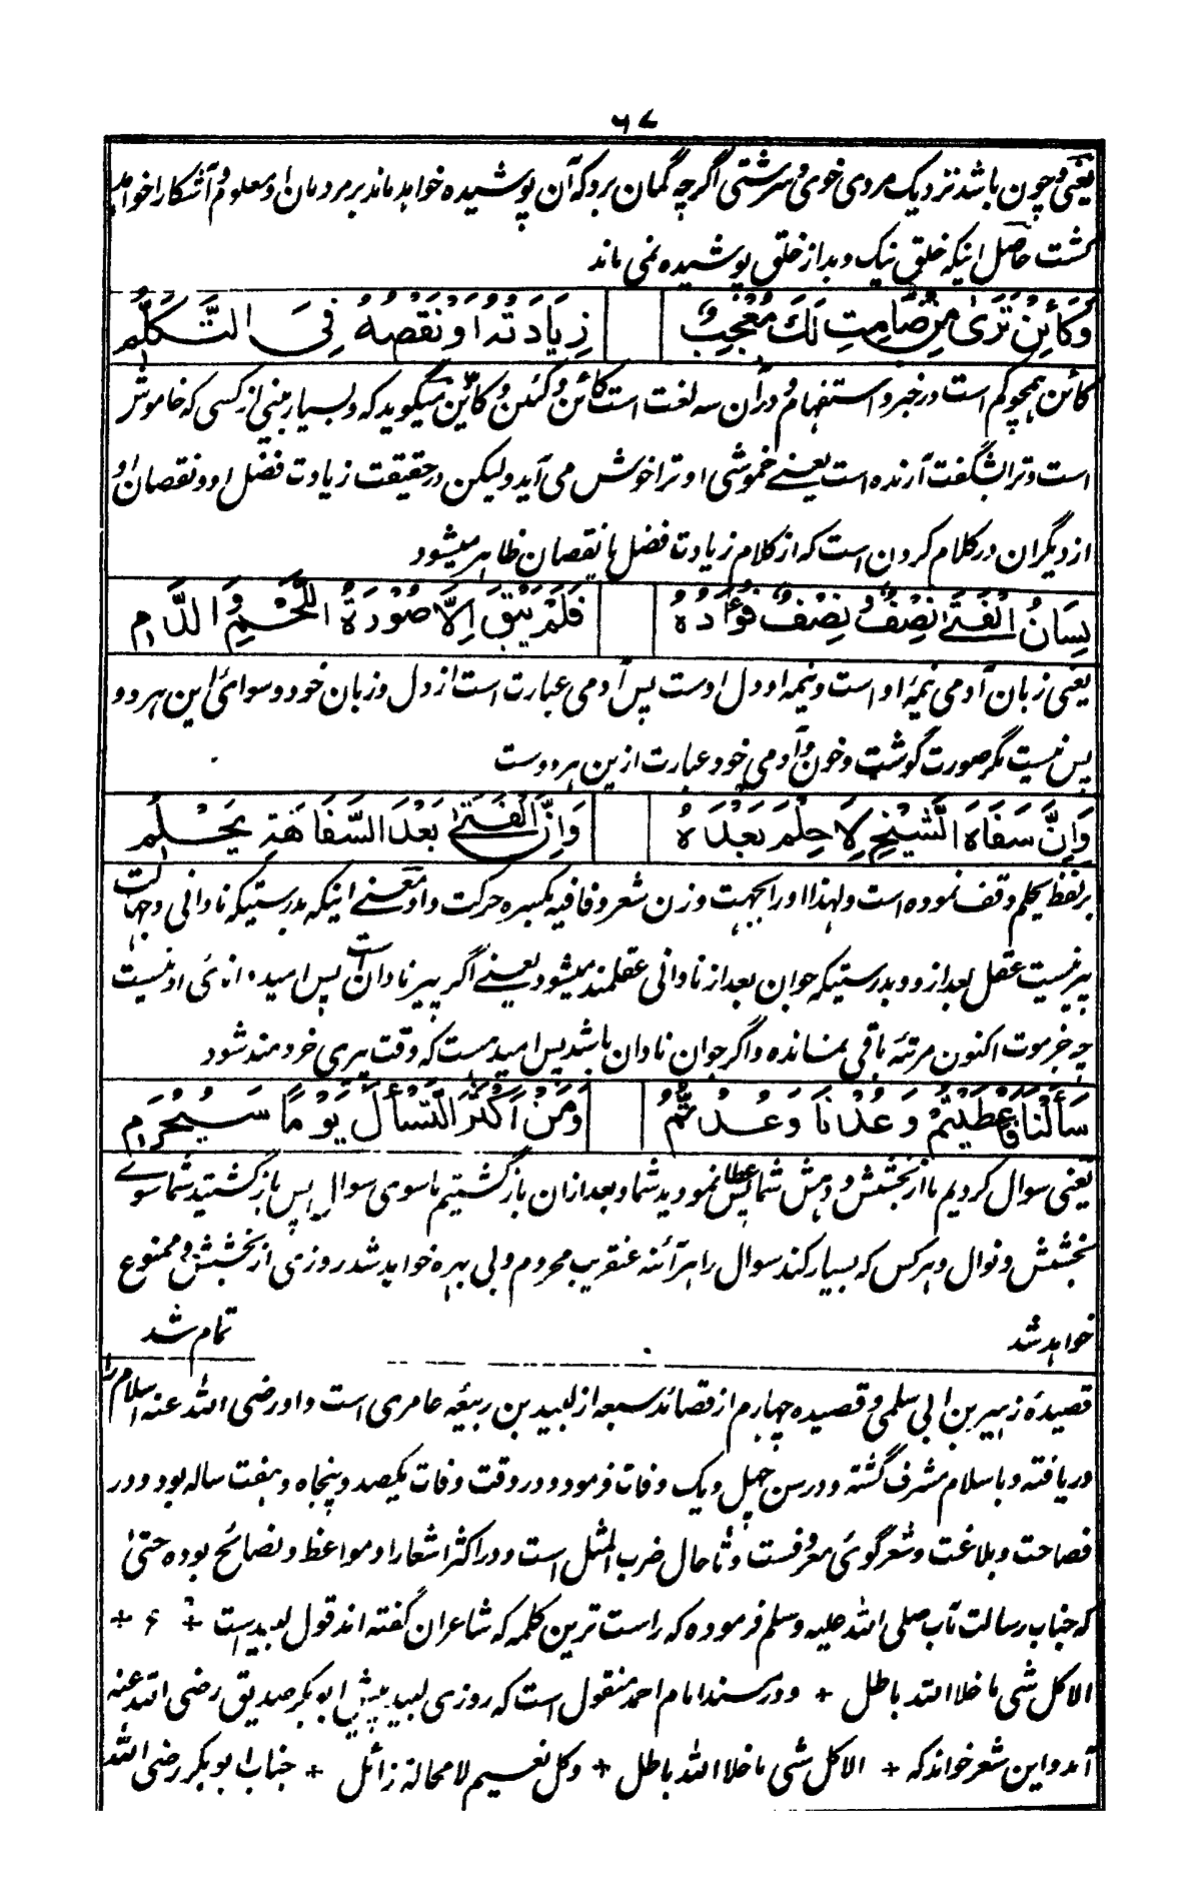 ۶۷
یعنی و چون باشد نزدیک مردی خوی و سرشتی اگرچه گمان برد که آن پوشیده خواهد ماند بر مردمان او معلوم و آشکارا خواهد
گشت حاصل اینکه خلق نیک و بد از خلق پوشیده نمی ماند
وَكَائِنْ تَرَىٰ مِنْ صَامِتٍ لَكَ مُعْجِبٍ زِيَادَتُهُ أَوْ نَقْصُهُ فِي التَّكَلُّمِ
کائن همچو کم است در خبر و استفهام و دران سه لغت است کائن و کئن و کأین میگوید که و بسیار بینی از کسی که خاموش
است و ترا بشگفت آرنده است یعنے خموشی او ترا خوش می آید ولیکن در حقیقت زیادت فضل او و نقصان او
از دیگران در کلام کردن است که از کلام زیادت فضل یا نقصان ظاهر میشود
لِسَانُ الْفَتَىٰ نِصْفٌ وَ نِصْفٌ فُؤَادُهُ فَلَمْ يَبْقَ إِلَّا صُورَةُ اللَّحْمِ وَ الدَّمِ
یعنی زبان آدمی نیمهٔ او است و نیمه او دل اوست پس آدمی عبارت است از دل و زبان خود و سوائے این هر دو
پس نیست مگر صورت گوشت و خون و آدمی خود عبارت ازین هر دوست
وَإِنَّ سَفَاهَ الشَّيْخِ لَا حِلْمَ بَعْدَهُ وَإِنَّ الْفَتَىٰ بَعْدَ السَّفَاهَةِ يَحْلُمِ
بر لفظ یحلم وقف نموده است و لهذا او را بجهت وزن شعر و قافیه بکسره حرکت داد معنے اینکه بدرستیکه نادانی و جهالت
پیر نیست عقل بعد ازو و بدرستیکه جوان بعد از نادانی عقلمند میشود یعنے اگر پیر نادان است پس امید دانائی او نیست
چه جز موت اکنون مرتبهٔ باقی نمانده و اگر جوان نادان باشد پس امید هست که وقت پیری خردمند شود
سَأَلْنَا فَأَعْطَيْتُمْ وَ عُدْنَا وَ عُدْتُمُ وَمَنْ أَكْثَرَ التَّسْآلَ يَوْمًا سَيُحْرَمِ
یعنی سوال کردیم ما از بخشش و دهش شما پس عطا نمودید شما و بعد ازان باز گشتیم ما سوی سوال پس باز گشتید شما سوے
بخشش و نوال و هر کس که بسیار کند سوال را هر آئنه عنقریب محروم و بی بهره خواهد شد روزی از بخشش و ممنوع
خواهد شد تمام شد
قصیدهٔ زهیر بن ابی سلمی و قصیده چهارم از قصائد سبعه از لبید بن ربیعه عامری است و او رضی الله عنه اسلام را
دریافته و باسلام مشرف گشته و در سن چهل و یک وفات فرمود و در وقت وفات یکصد و پنجاه و هفت ساله بود و در
فصاحت و بلاغت و شعر گوئی معروفست و تا حال ضرب المثل است و در اکثر اشعار او مواعظ و نصائح بوده حتیٰ
که جناب رسالت مآب صلی الله علیه وسلم فرموده که راست ترین کلمه که شاعران گفته اند قول لبید است + ع +
الا کل شی ما خلا الله باطل + و در مسند امام احمد منقول است که روزی لبید پیش ابوبکر صدیق رضی الله عنه
آمد و این شعر خواند که + الا کل شی ما خلا الله باطل + و کل نعیم لا محالة زائل + جناب ابوبکر رضی الله